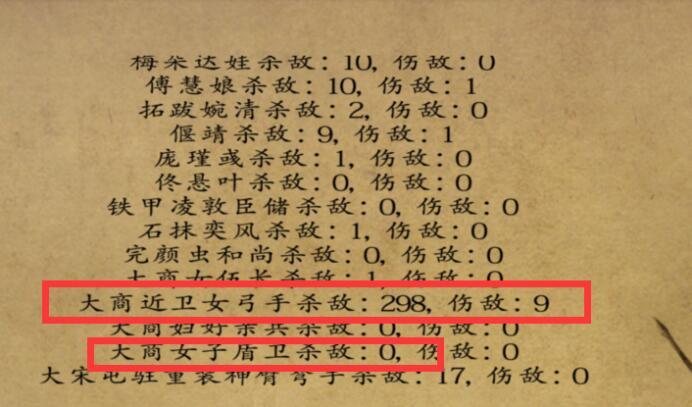 梅朵达娃杀敌：10, 伤敌：0
傅慧娘杀敌：10, 伤敌：1
拓跋婉清杀敌：2, 伤敌：0
偃靖杀敌：9, 伤敌：1
庞瑾彧杀敌：1, 伤敌：0
佟悬叶杀敌：0, 伤敌：0
铁甲凌敦臣储杀敌：0, 伤敌：0
石抹奕风杀敌：1, 伤敌：0
完颜虫和尚杀敌：0, 伤敌：0
大商女伍长杀敌：1, 伤敌：0
大商近卫女弓手杀敌：298, 伤敌：9
大商妇好亲兵杀敌：0, 伤敌：0
大商女子盾卫杀敌：0, 伤敌：0
大宋屯驻重装神臂弩手杀敌：17, 伤敌：0